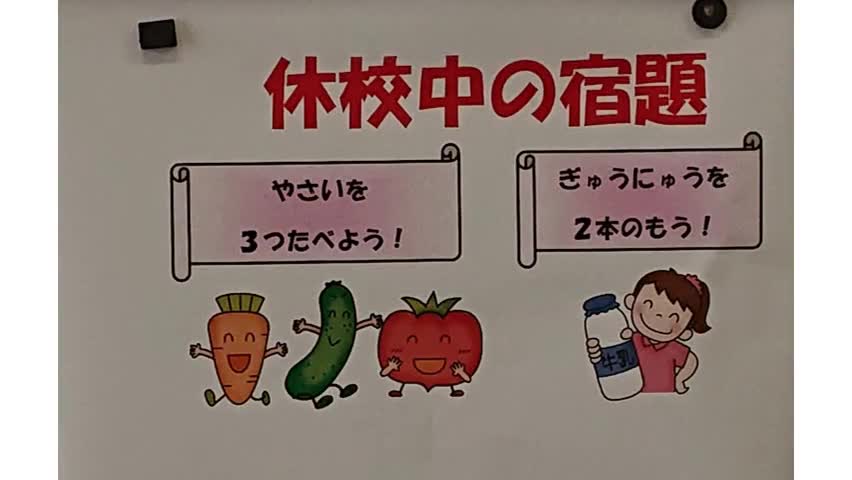 休校中の宿題
やさいを
3つたべよう！
ぎゅうにゅうを
2本のもう！
牛乳